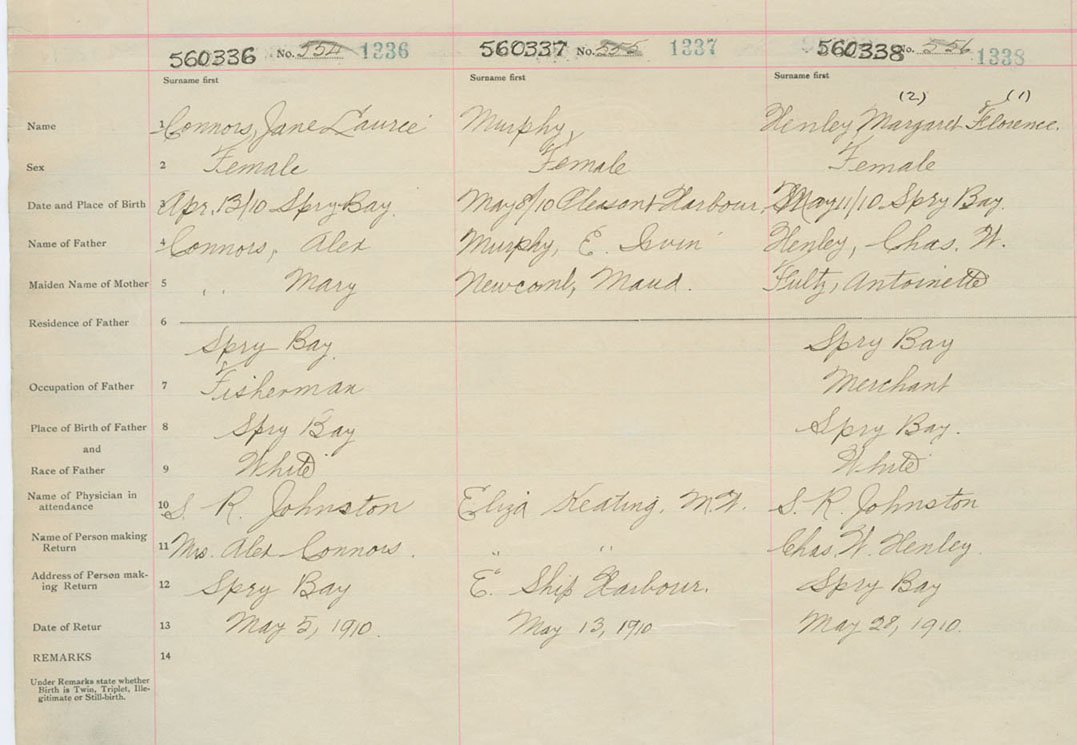 560336 No. 554 1336 560337 No. 555 1337 560338 No. 556 1338
Surname first Surname first Surname first
(2) (1)
Name 1 Connors, Jane Laurie Murphy, Henley Margaret Florence.
Sex 2 Female Female Female
Date and Place of Birth 3 Apr. 13/10 Spry Bay. May 8/10 Pleasant Harbour. May 11/10 Spry Bay.
Name of Father 4 Connors, Alex Murphy, E. Irvin Henley, Chas. W.
Maiden Name of Mother 5 " Mary Newcomb, Maud. Fultz, Antoinette
Residence of Father 6
Spry Bay. Spry Bay
Occupation of Father 7 Fisherman Merchant
Place of Birth of Father 8 Spry Bay Spry Bay.
and
Race of Father 9 White White
Name of Physician in
attendance 10 S. R. Johnston Eliza Keating. M.W. S. R. Johnston
Name of Person making
Return 11 Mrs. Alex Connors. " " Chas. W. Henley.
Address of Person mak-
ing Return 12 Spry Bay E. Ship Harbour. Spry Bay
Date of Retur 13 May 5, 1910. May 13, 1910 May 28, 1910.
REMARKS 14
Under Remarks state whether
Birth is Twin, Triplet, Ille-
gitimate or Still-birth.